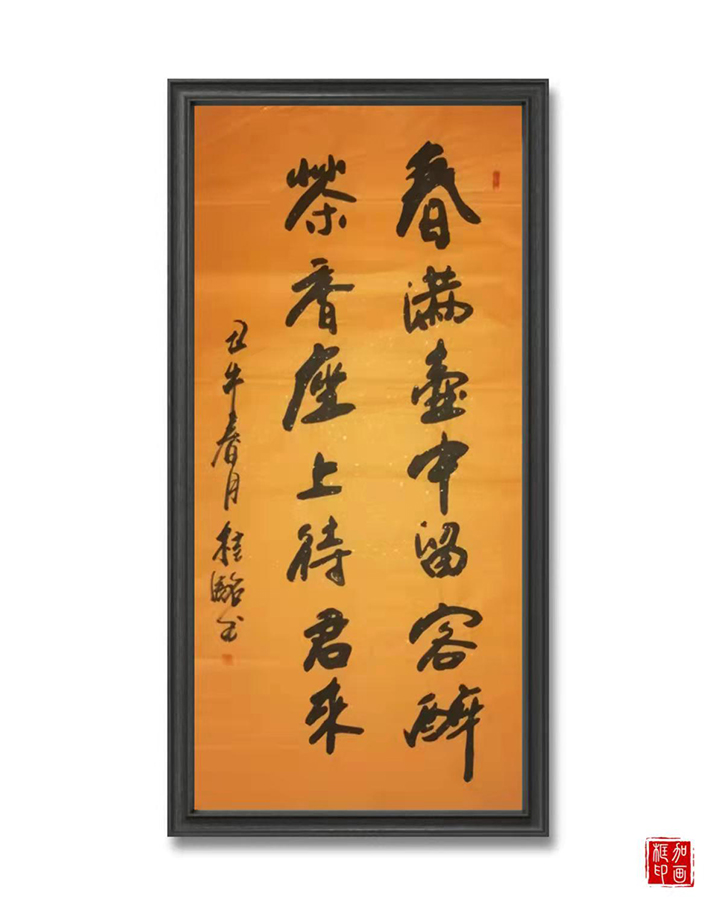 春满壶中留客醉
茶香座上待君来
丑牛春月 桂 书
加画框印